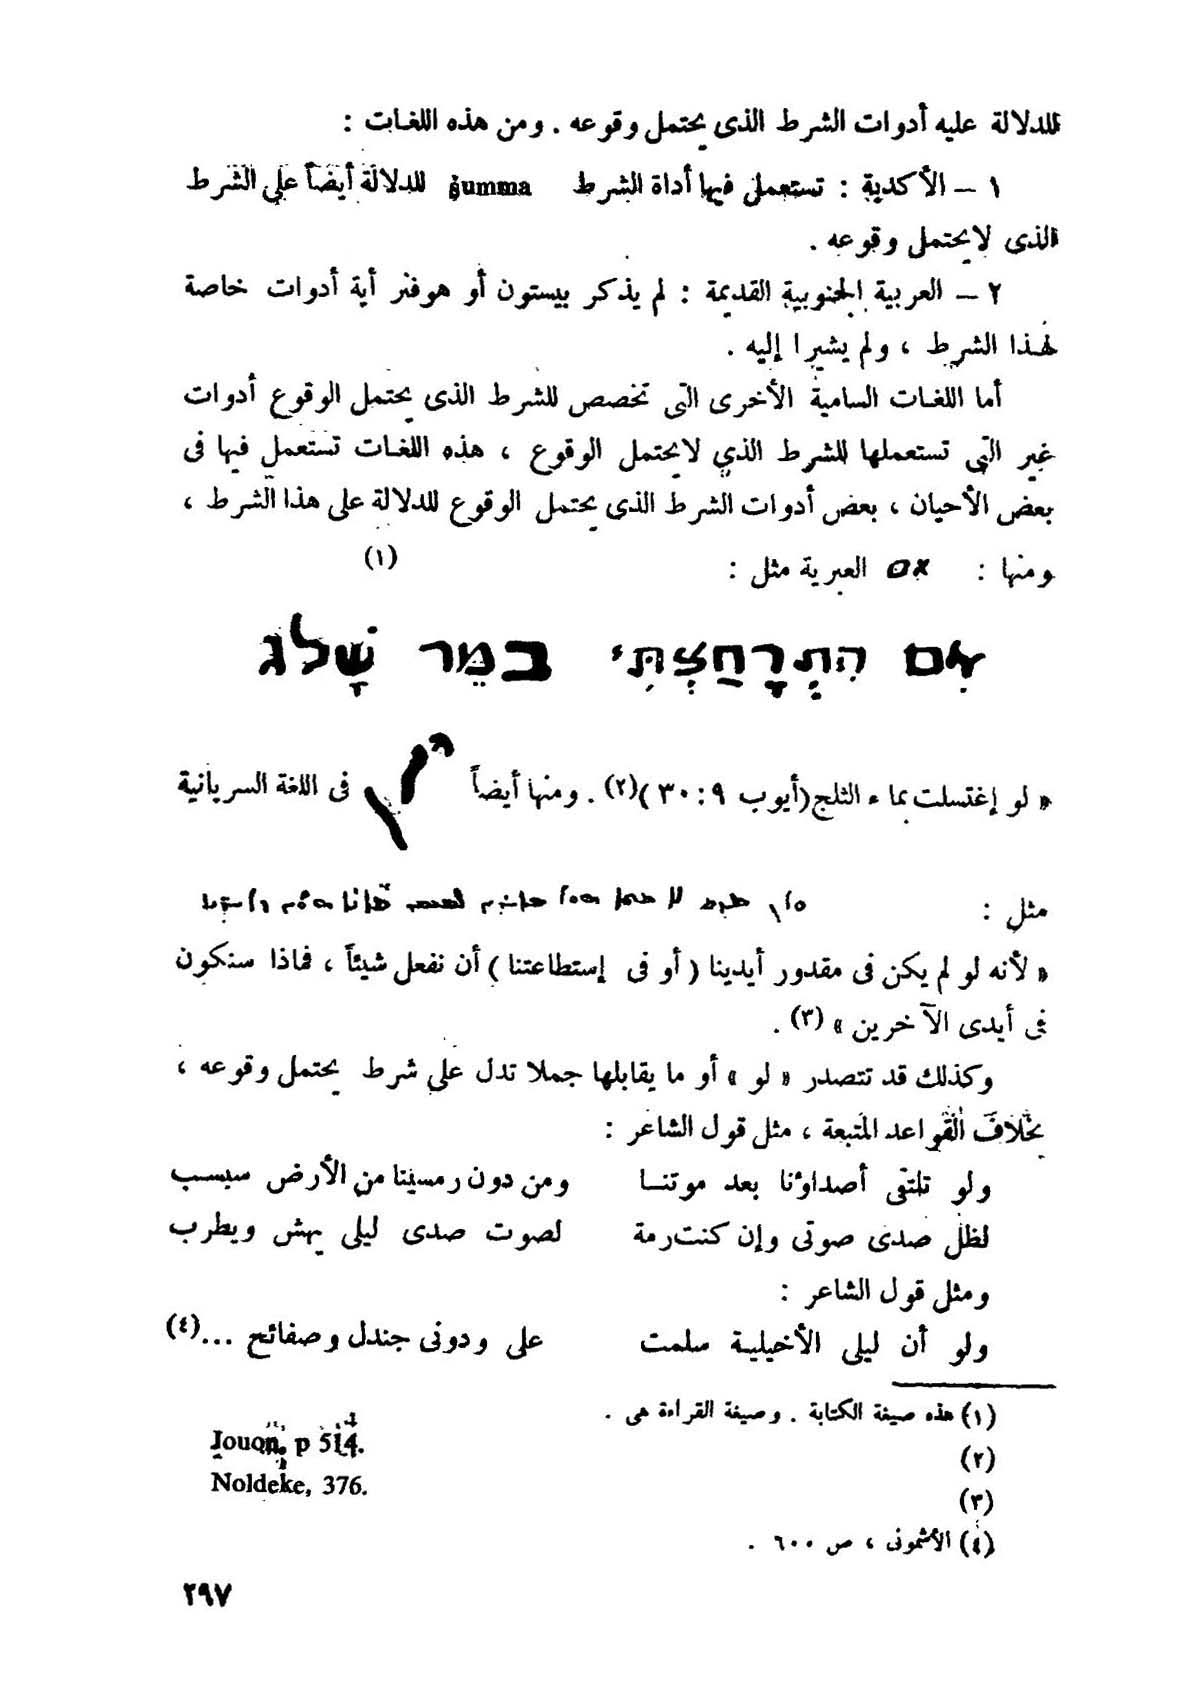 للدلالة عليه أدوات الشرط الذى يحتمل وقوعه . ومن هذه اللغات :
١ – الأكدية : تستعمل فيها أداة الشرط šumma للدلالة أيضاً على الشرط
الذى لا يحتمل وقوعه .
٢ – العربية الجنوبية القديمة : لم يذكر بيستون أو هوفنر أية أدوات خاصة
لهذا الشرط ، ولم يشيرا إليه .
أما اللغات السامية الأخرى التى تخصص للشرط الذى يحتمل الوقوع أدوات
غير التى تستعملها للشرط الذى لا يحتمل الوقوع ، هذه اللغات تستعمل فيها فى
بعض الأحيان ، بعض أدوات الشرط الذى يحتمل الوقوع للدلالة على هذا الشرط ،
ومنها : אם العبرية مثل : (١)
אִם הִתְרָחַצְתִּי בְמֵר שָׁלֶג
« لو إغتسلت بماء الثلج (أيوب ٩ : ٣٠ )(٢) . ومنها أيضاً فى اللغة السريانية
مثل :
« لأنه لو لم يكن فى مقدور أيدينا ( أو فى إستطاعتنا ) أن نفعل شيئاً ، فماذا سنكون
فى أيدى الآخرين » (٣) .
وكذلك قد تتصدر « لو » أو ما يقابلها جملا تدل على شرط يحتمل وقوعه ،
بخلاف القواعد المتبعة ، مثل قول الشاعر :
ولو تلتقى أصداؤنا بعد موتنـا ومن دون رمسينا من الأرض سبسب
لظل صدى صوتى وإن كنت رمة لصوت صدى ليلى يهش ويطرب
ومثل قول الشاعر :
ولو أن ليلى الأخيلية سلمت على ودونى جندل وصفائح ...(٤)
(١) هذه صيغة الكتابة . وصيغة القراءة هى .
(٢) Jouon, p 514.
(٣) Noldeke, 376.
(٤) الأشمونى ، ص ٦٠٠ .
٢٩٧